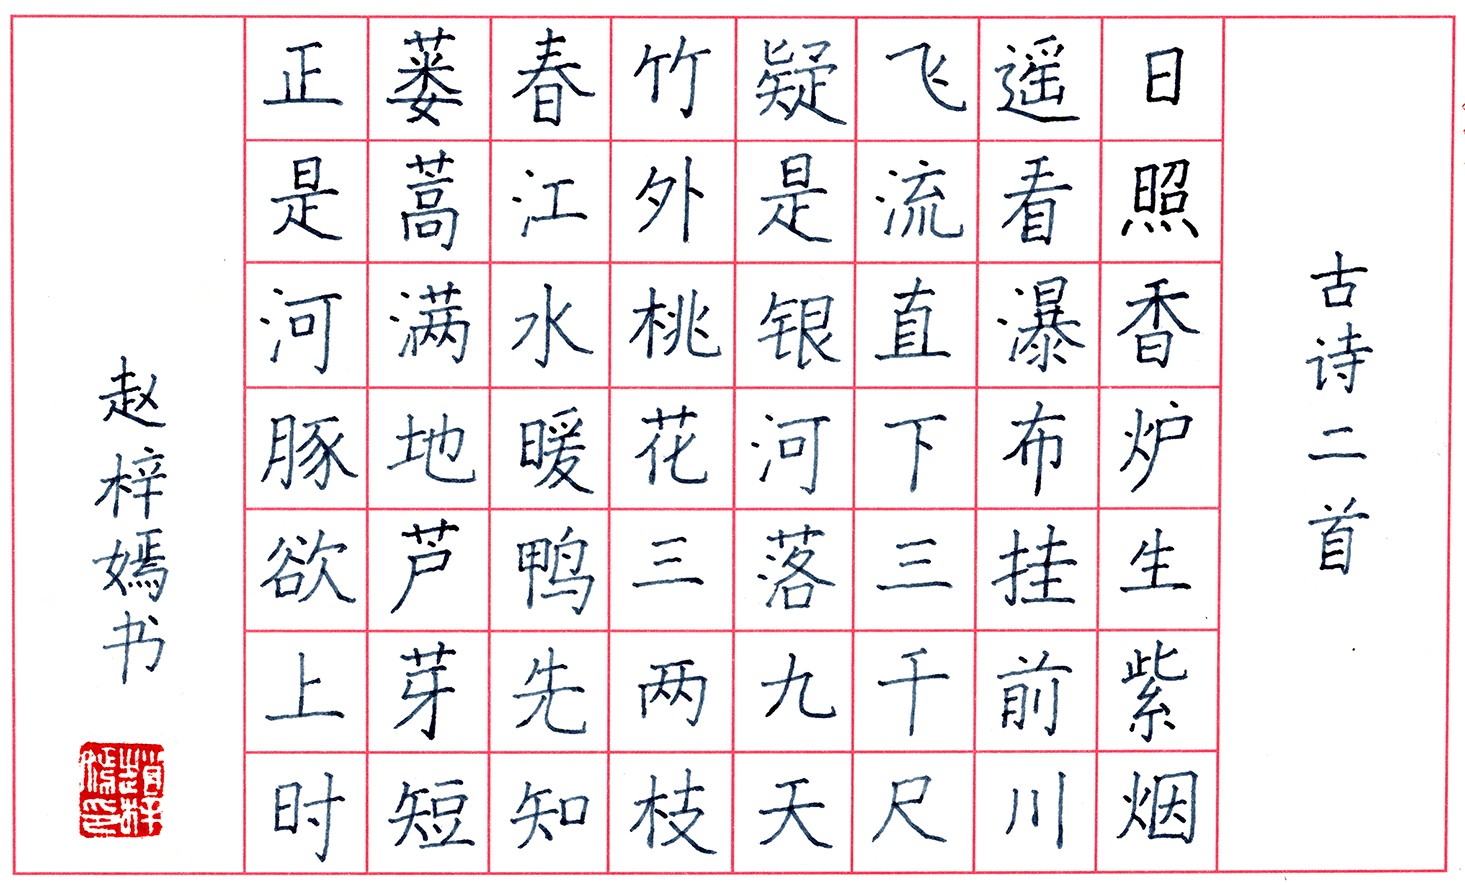 古诗二首
日照香炉生紫烟
遥看瀑布挂前川
飞流直下三千尺
疑是银河落九天
竹外桃花三两枝
春江水暖鸭先知
蒌蒿满地芦芽短
正是河豚欲上时
赵梓嫣书